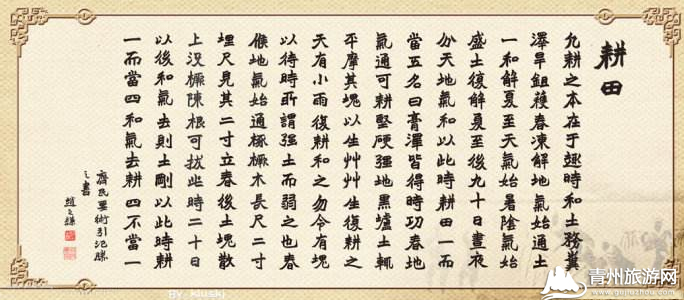 耕田
允耕之本在于趣時和土務糞
澤旱鉏穫春凍解地氣始通土
一和解夏至天氣始暑陰氣始
盛土復解夏至後九十日晝夜
分天地氣和以此時耕田一而
當五名曰膏澤皆得時功春地
氣通可耕堅硬強地黑壚土輒
平摩其塊以生艸艸生復耕之
天有小雨復耕和之勿令有塊
以待時所謂強土而弱之也春
候地氣始通椓橛木長尺二寸
埋尺見其二寸立春後土塊散
上沒橛陳根可拔此時二十日
以後和氣去則土剛以此時耕
一而當四和氣去耕四不當一
齊民要術引氾勝
之書
趙之謙
青州旅游网